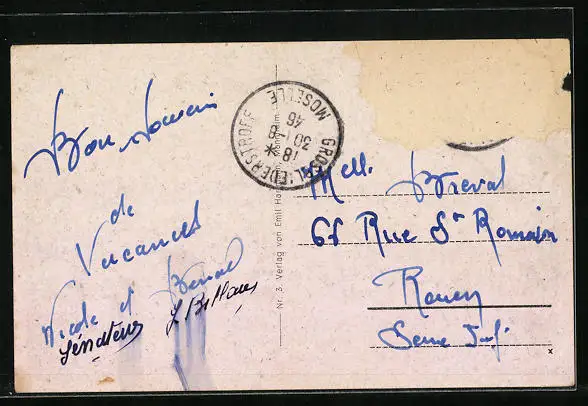 Bon Souvenir
de
Vacances
Nicole et Bernard
Sénateur
GROSBLIEDERSTROFF
MOSELLE
18 *
30 - 8
46
Nr. 3. Verlag von Emil
Mell. Breval
61 Rue St Romain
Rouen
Seine Inf.
x